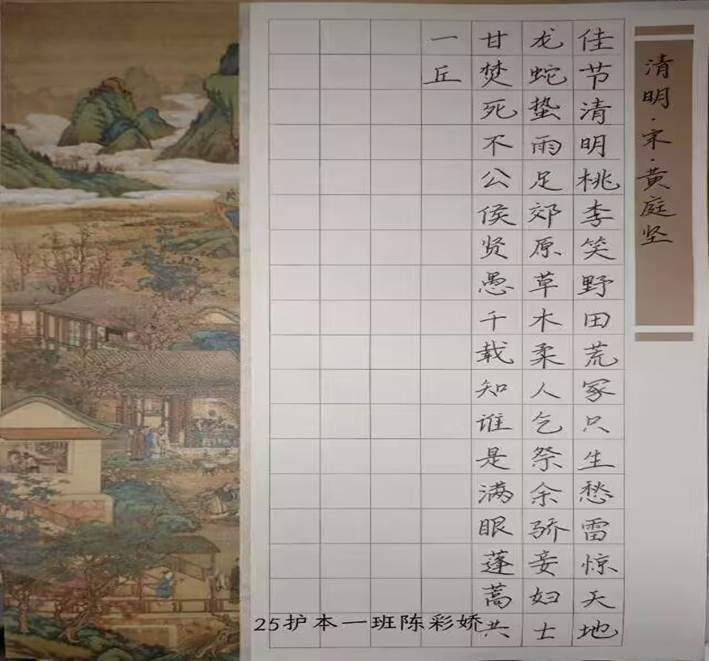 清明·宋·黄庭坚
佳节清明桃李笑野田荒冢只生愁雷惊天地
龙蛇蛰雨足郊原草木柔人乞祭余骄妾妇士
甘焚死不公侯贤愚千载知谁是满眼蓬蒿共
一丘
25护本一班陈彩娇